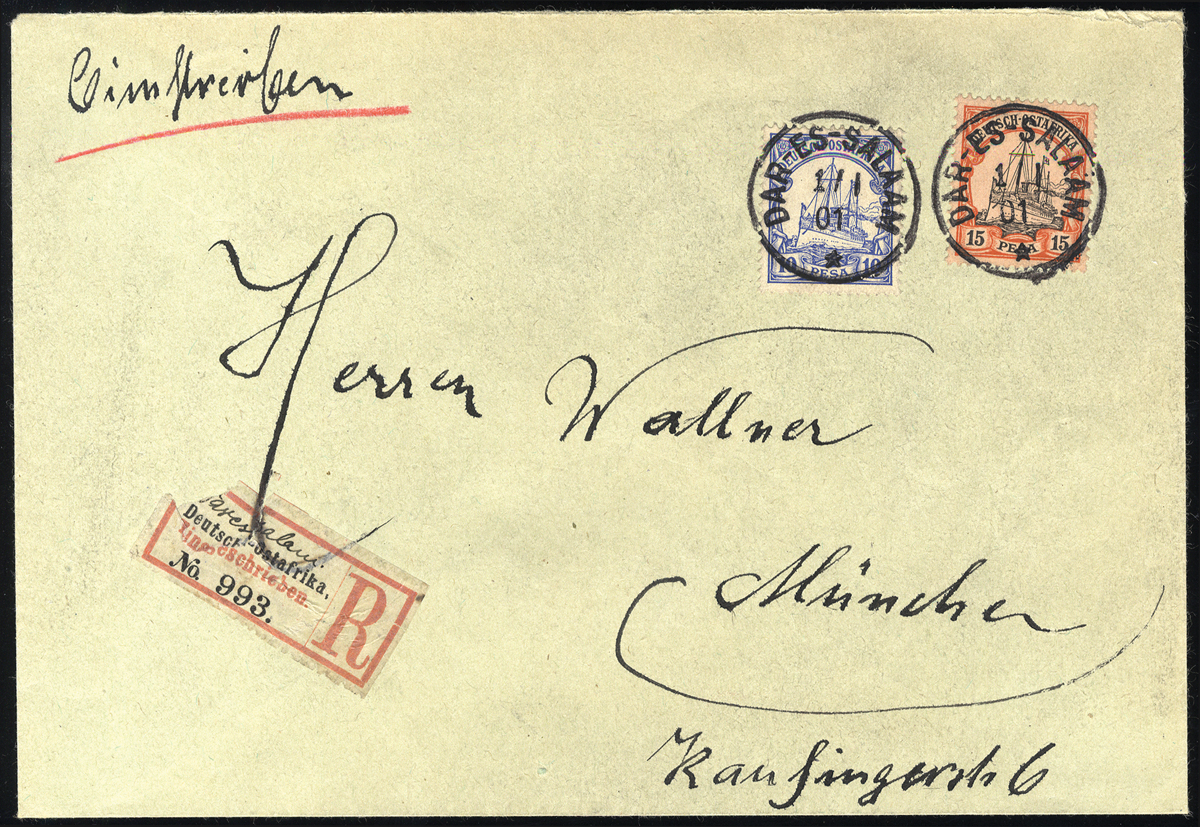 Einschreiben
DEUTSCH-OSTAFRIKA
10 PESA 10
DAR-ES-SALAAM
1/1
01
DEUTSCH-OSTAFRIKA
15 PESA 15
DAR-ES-SALAAM
1/1
01
Herren Wallner
Daressalam
Deutsch-Ostafrika.
Eingeschrieben.
No. 993.
R
München
Kaufingerstr 6